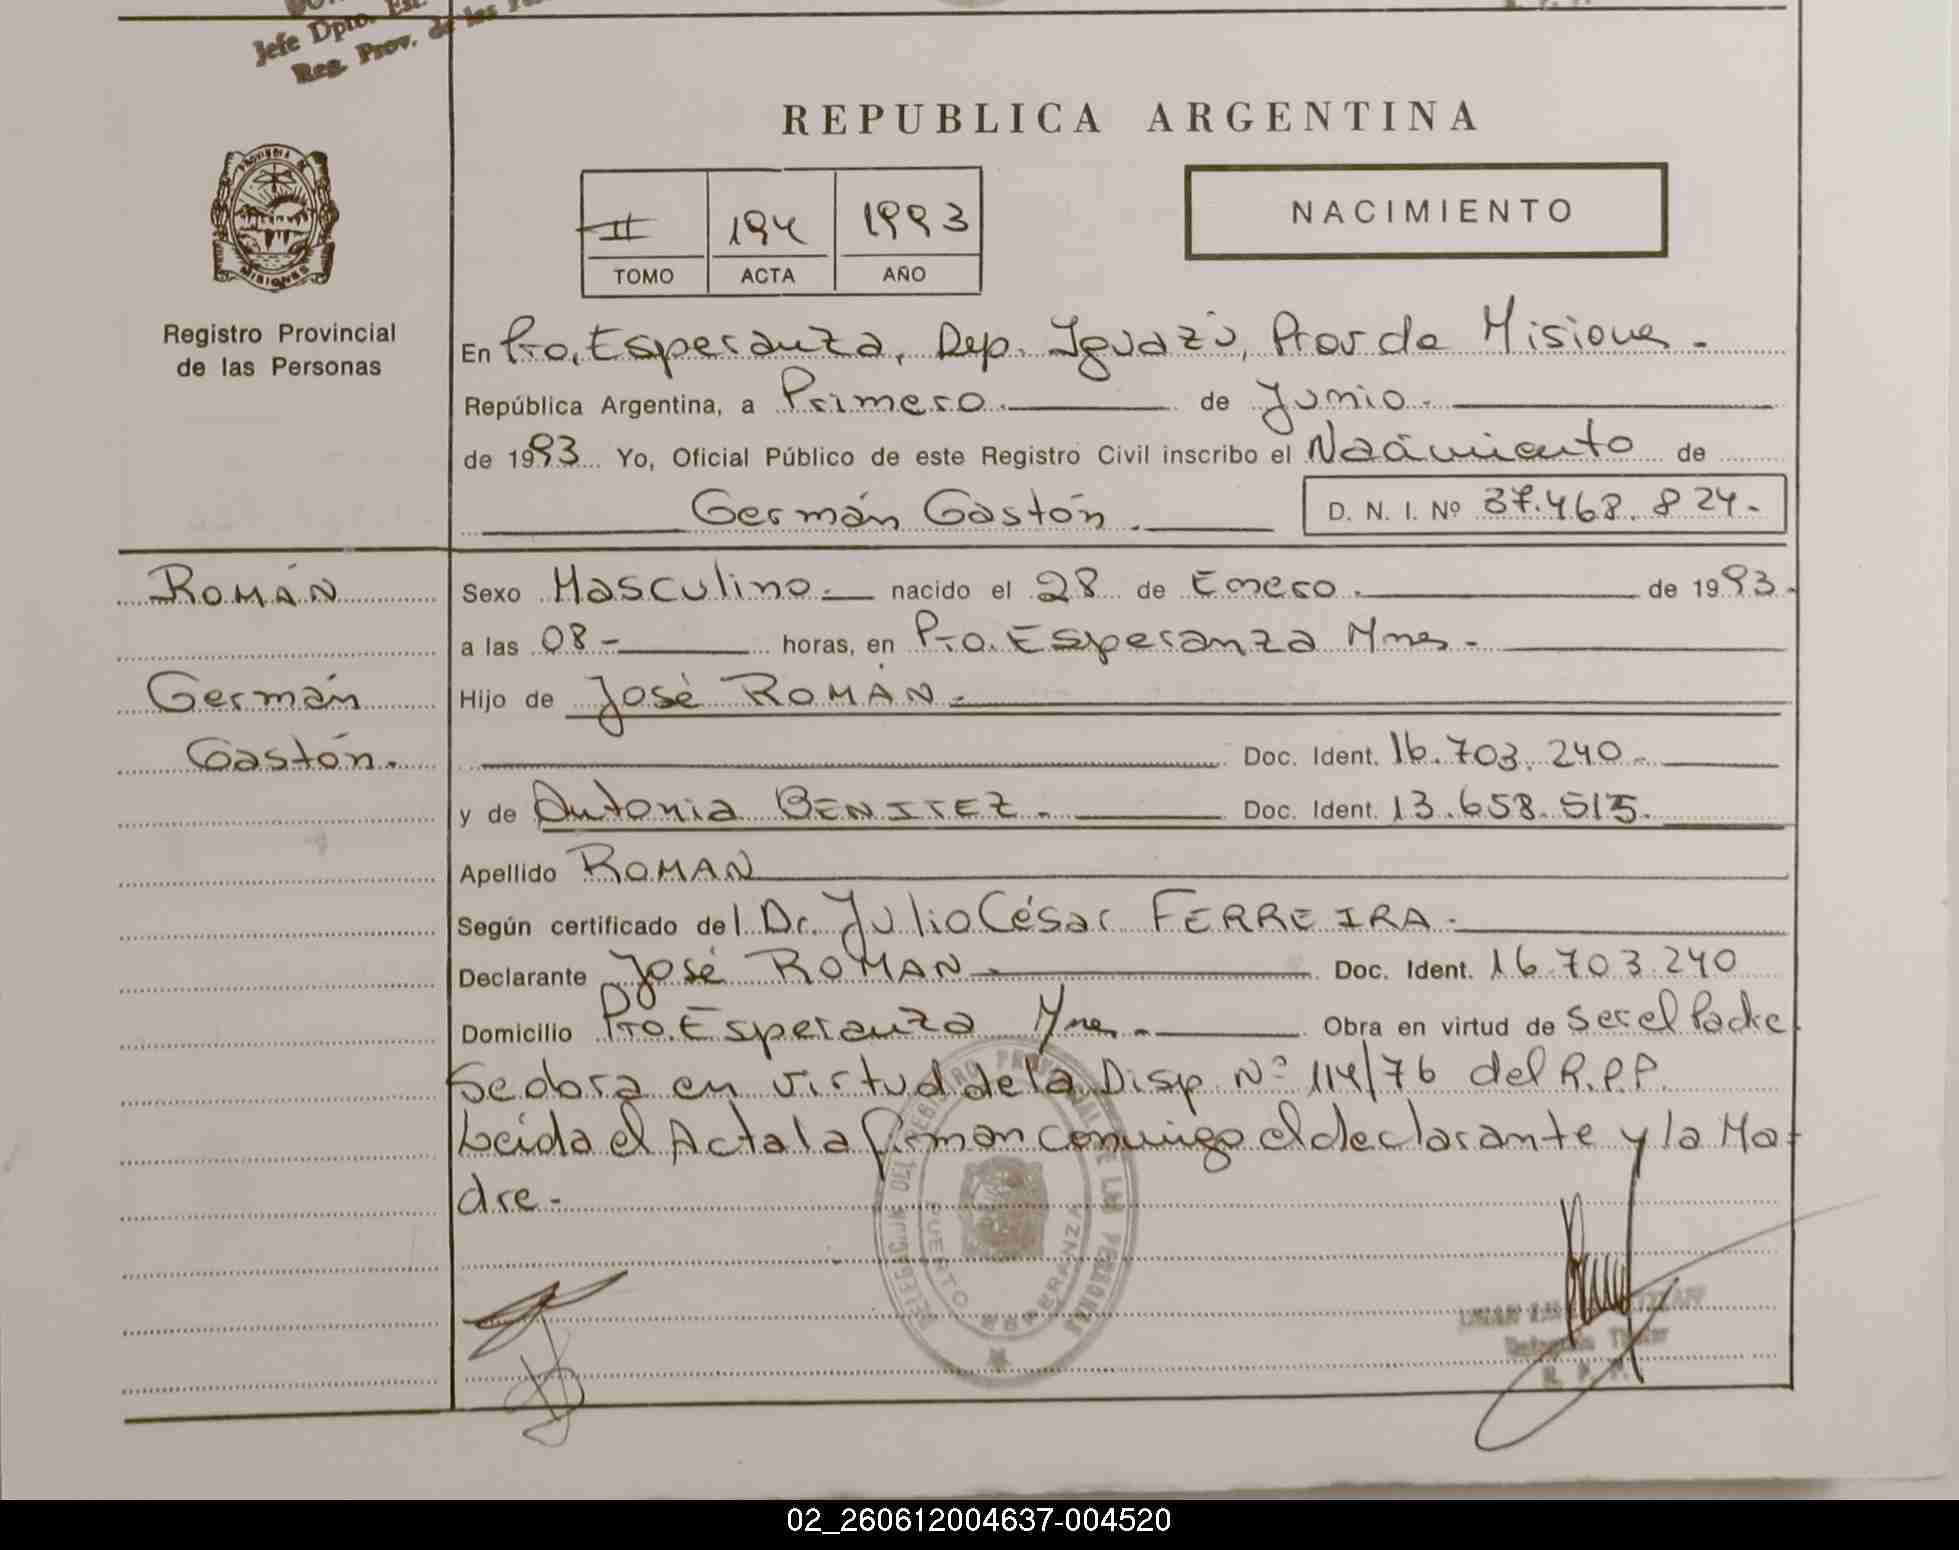 Jefe Dpto.
Reg. Prov. de las
REPUBLICA ARGENTINA
PROVINCIA DE
MISIONES
II 194 1993
TOMO ACTA AÑO
NACIMIENTO
Registro Provincial
de las Personas
En Pto. Esperanza, Dep. Iguazú, Prov de Misiones.-
República Argentina, a Primero. de Junio.
de 1993 Yo, Oficial Público de este Registro Civil inscribo el Nacimiento de
Germán Gastón. D. N. I. Nº 37.468.824.-
ROMÁN
Germán
Gastón.
Sexo Masculino.- nacido el 28 de Enero. de 1993.-
a las 08- horas, en Pto. Esperanza Mnes.-
Hijo de José ROMÁN.-
Doc. Ident. 16.703.240.-
y de Antonia BENITEZ.- Doc. Ident. 13.658.515.
Apellido ROMAN
Según certificado del Dr. Julio César FERREIRA.-
Declarante José ROMAN.- Doc. Ident. 16.703.240
Domicilio Pto. Esperanza Mnes.- Obra en virtud de ser el Padre
Se obra en virtud de la Disp. Nº 114/76 del R.P.P.
Leida el Acta la firman conmigo el declarante y la Ma-
dre.-
DELEGACION DEL REGISTRO PROVINCIAL DE LAS PERSONAS
PUERTO ESPERANZA
Titular
R. P. P.
02_260612004637-004520